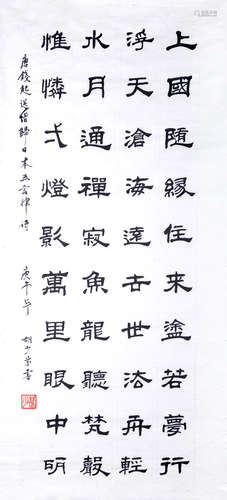 上國隨緣住来塗若夢行
浮天滄海遠去世法舟輕
水月通禪寂魚龍聽梵聲
惟憐弌燈影萬里眼中明
唐錢起送僧歸日本五言律詩 庚午年 胡書